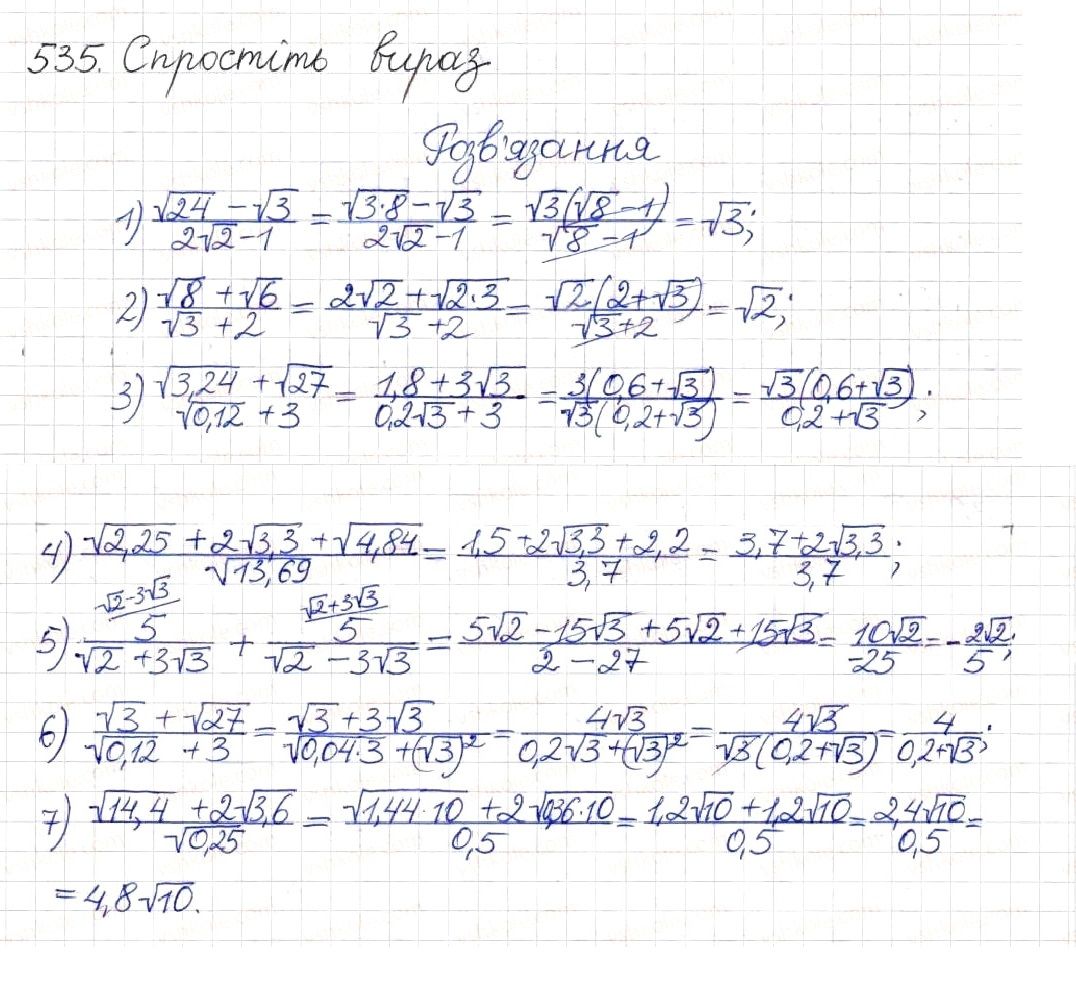 535. Спростіть вираз
Розв'язання
1) (√24 - √3)/(2√2 - 1) = (√(3·8) - √3)/(2√2 - 1) = (√3(√8 - 1))/(√8 - 1) = √3;
2) (√8 + √6)/(√3 + 2) = (2√2 + √(2·3))/(√3 + 2) = (√2(2 + √3))/(√3 + 2) = √2;
3) (√3,24 + √27)/(√0,12 + 3) = (1,8 + 3√3)/(0,2√3 + 3) = (3(0,6 + √3))/(√3(0,2 + √3)) = (√3(0,6 + √3))/(0,2 + √3);
4) (√2,25 + 2√3,3 + √4,84)/√13,69 = (1,5 + 2√3,3 + 2,2)/3,7 = (3,7 + 2√3,3)/3,7;
√2 - 3√3 √2 + 3√3
5) 5/(√2 + 3√3) + 5/(√2 - 3√3) = (5√2 - 15√3 + 5√2 + 15√3)/(2 - 27) = 10√2/-25 = -2√2/5;
6) (√3 + √27)/(√0,12 + 3) = (√3 + 3√3)/(√(0,04·3) + (√3)²) = 4√3/(0,2√3 + (√3)²) = 4√3/(√3(0,2 + √3)) = 4/(0,2 + √3);
7) (√14,4 + 2√3,6)/√0,25 = (√(1,44·10) + 2√(0,36·10))/0,5 = (1,2√10 + 1,2√10)/0,5 = 2,4√10/0,5 =
= 4,8√10.